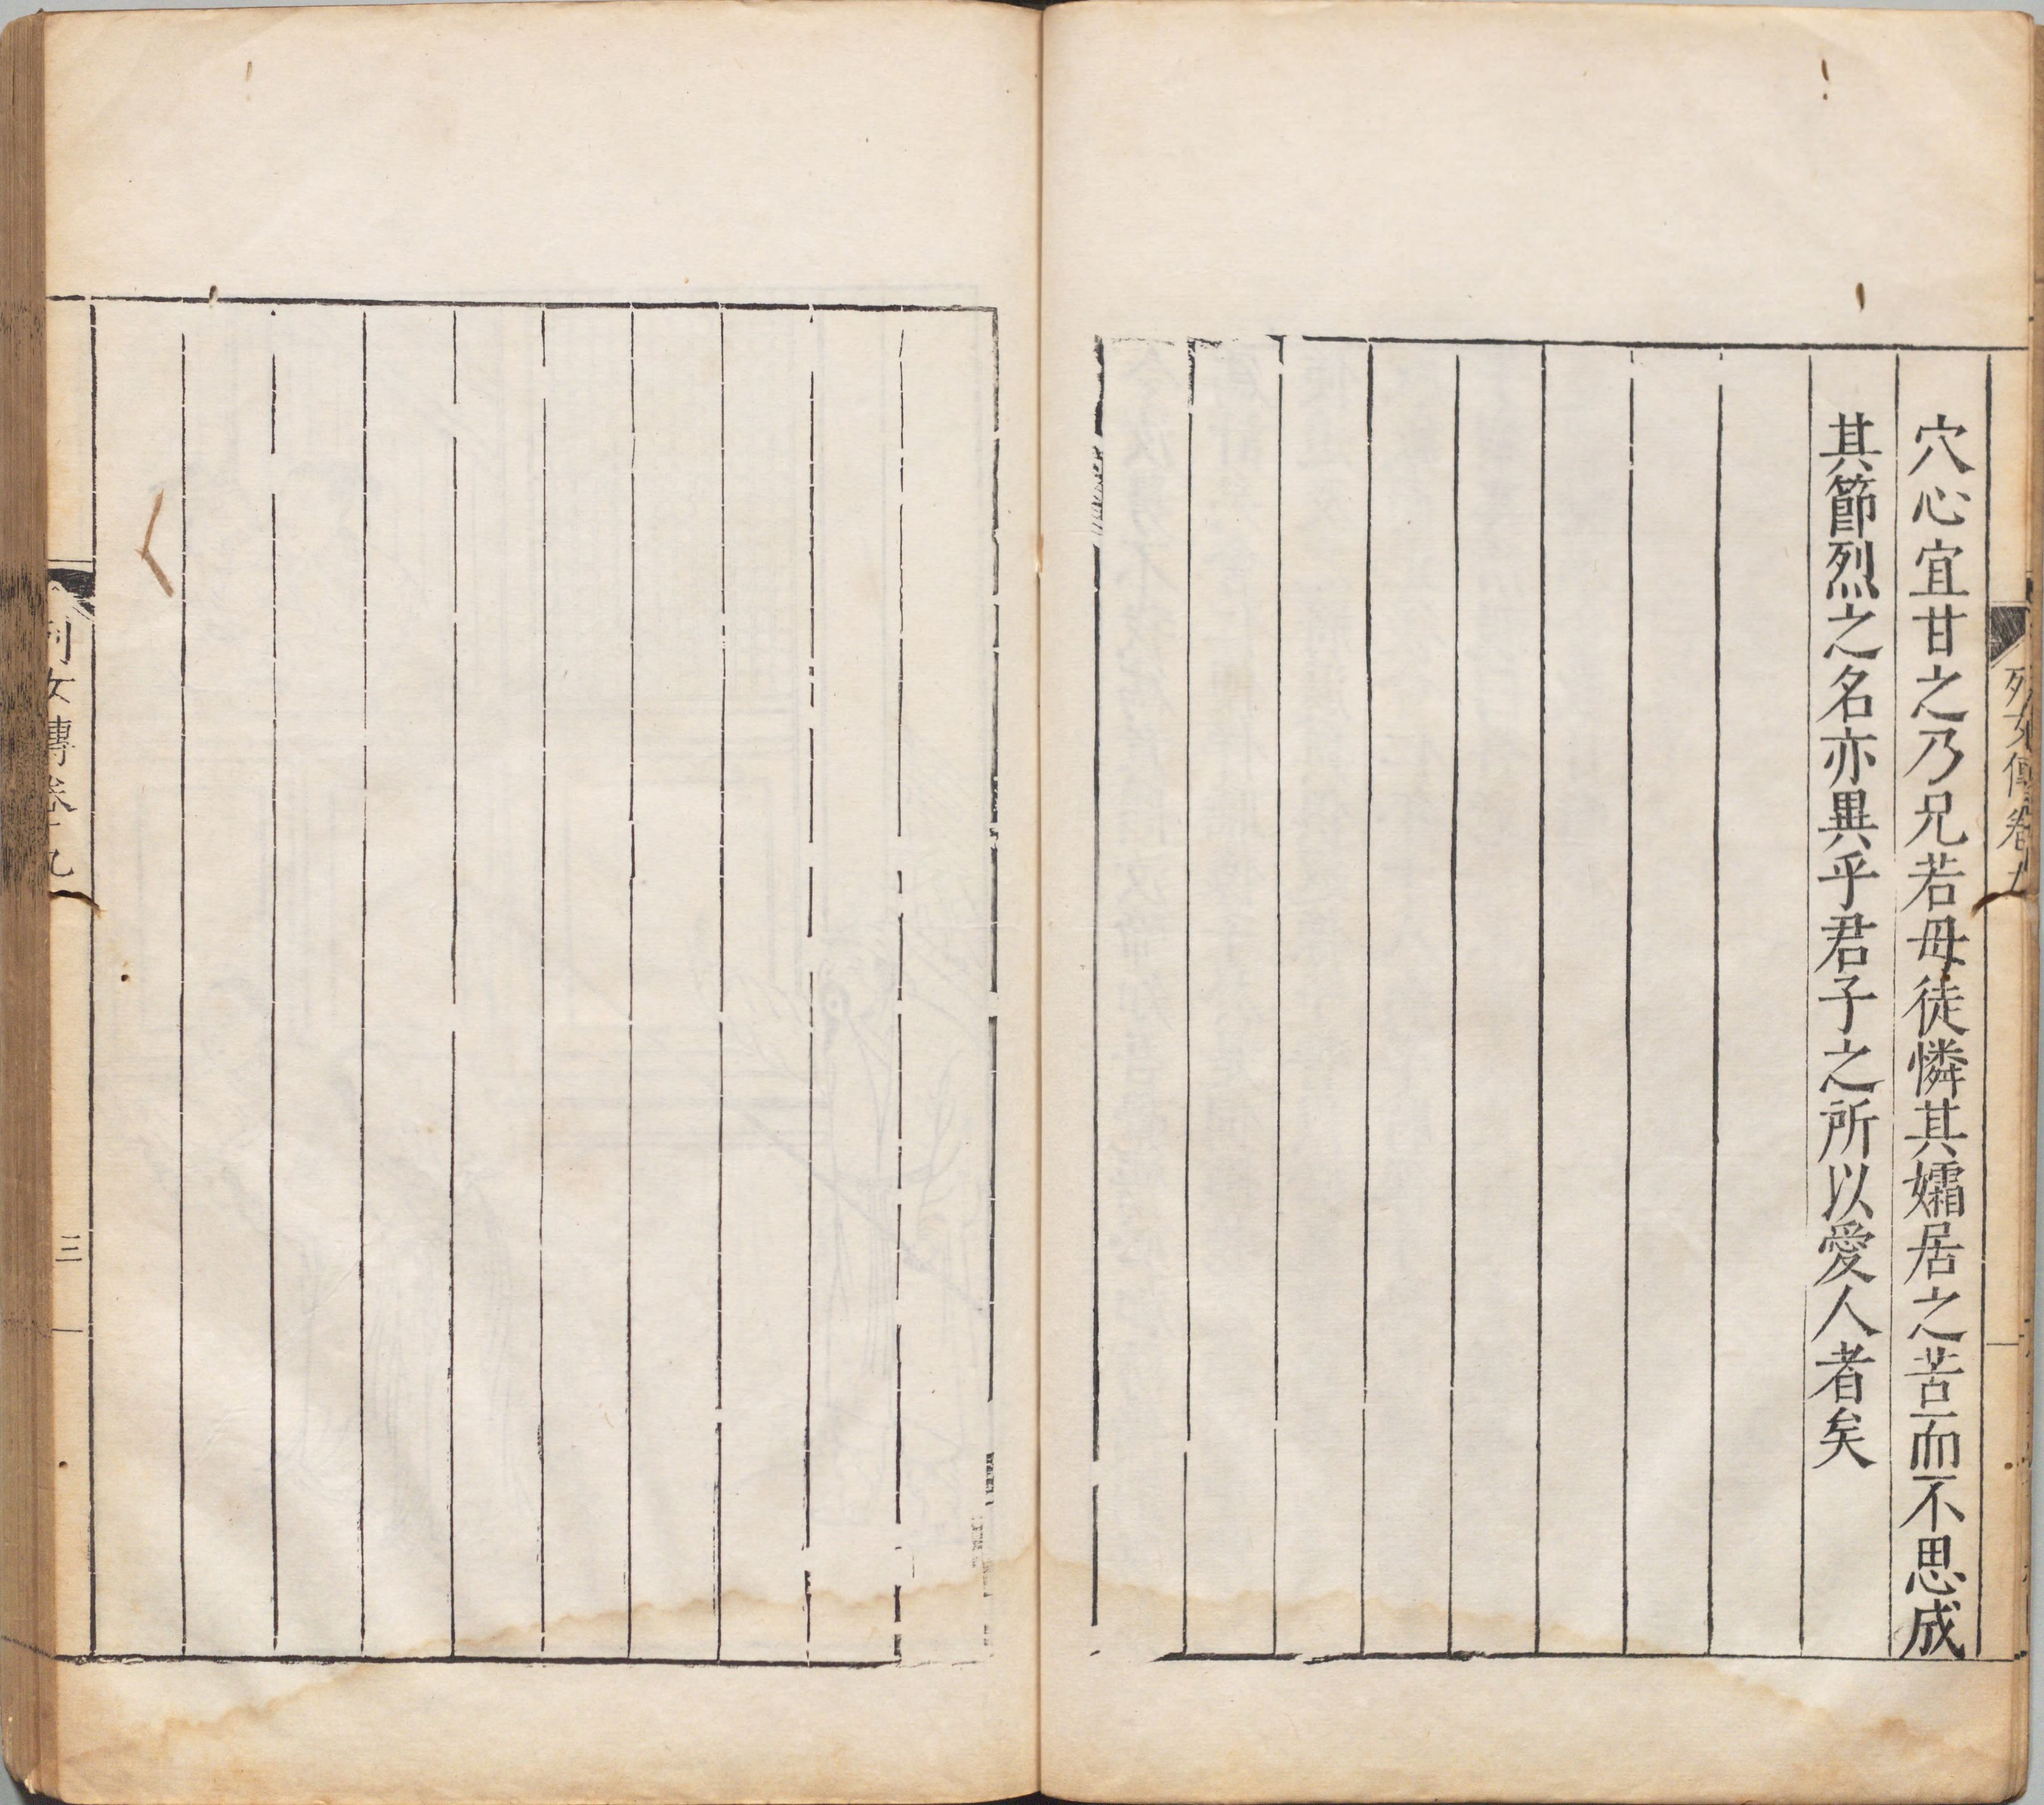 穴心宜甘之乃兄若母徒憐其孀居之苦而不思成
其節烈之名亦異乎君子之所以愛人者矣
列女傳卷
列女傳卷十九
三